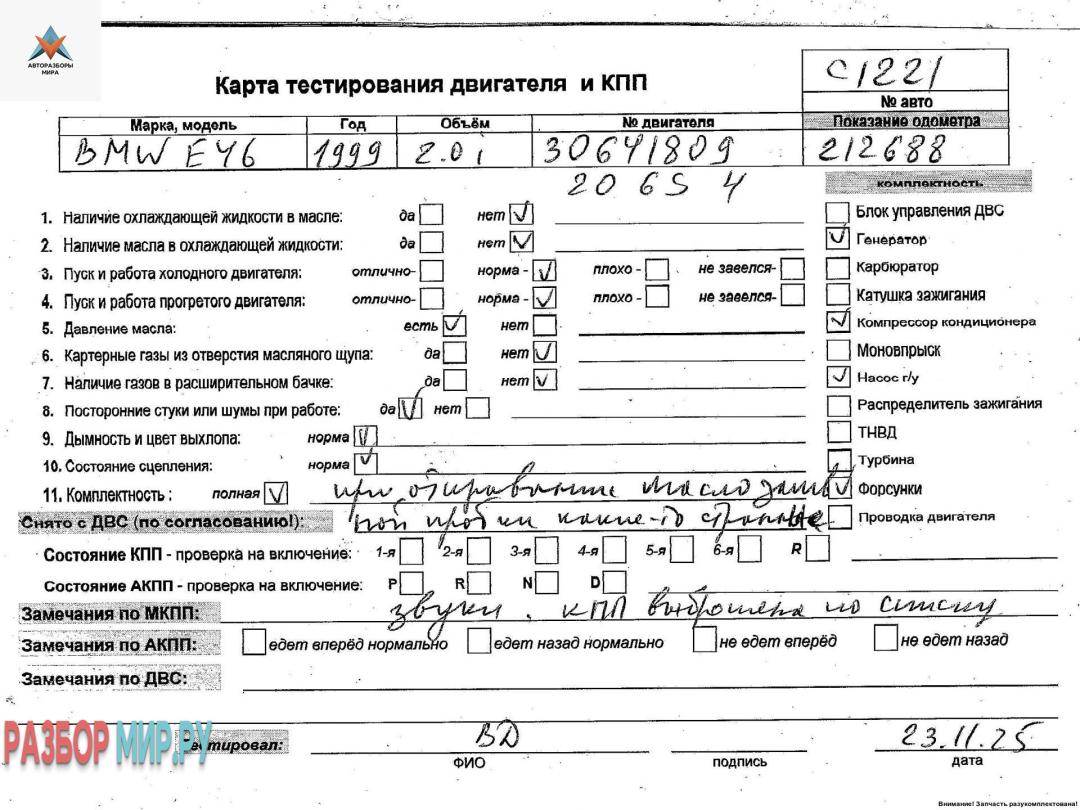 АВТОРАЗБОРЫ
МИРА
Карта тестирования двигателя и КПП
C1221
№ авто
Марка, модель Год Объём № двигателя Показание одометра
BMW E46 1999 2.0i 30641809 212688
20 6S 4
комплектность
1. Наличие охлаждающей жидкости в масле: да нет Блок управления ДВС
2. Наличие масла в охлаждающей жидкости: да нет Генератор
3. Пуск и работа холодного двигателя: отлично- норма - плохо - не завелся- Карбюратор
4. Пуск и работа прогретого двигателя: отлично- норма - плохо - не завелся- Катушка зажигания
5. Давление масла: есть нет Компрессор кондиционера
6. Картерные газы из отверстия масляного щупа: да нет Моновпрыск
7. Наличие газов в расширительном бачке: да нет Насос г/у
8. Посторонние стуки или шумы при работе: да нет Распределитель зажигания
9. Дымность и цвет выхлопа: норма ТНВД
10. Состояние сцепления: норма Турбина
11. Комплектность : полная при откравании маслозалив Форсунки
Снято с ДВС (по согласованию!): ной пробки какие-то странные Проводка двигателя
Состояние КПП - проверка на включение: 1-я 2-я 3-я 4-я 5-я 6-я R
Состояние АКПП - проверка на включение: P R N D
Замечания по МКПП: звуки. КПП выброшена по списку
Замечания по АКПП: едет вперёд нормально едет назад нормально не едет вперёд не едет назад
Замечания по ДВС:
РАЗБОР МИР.РУ
Тестировал: ВД 23.11.25
ФИО подпись дата
Внимание! Запчасть разукомплектована!